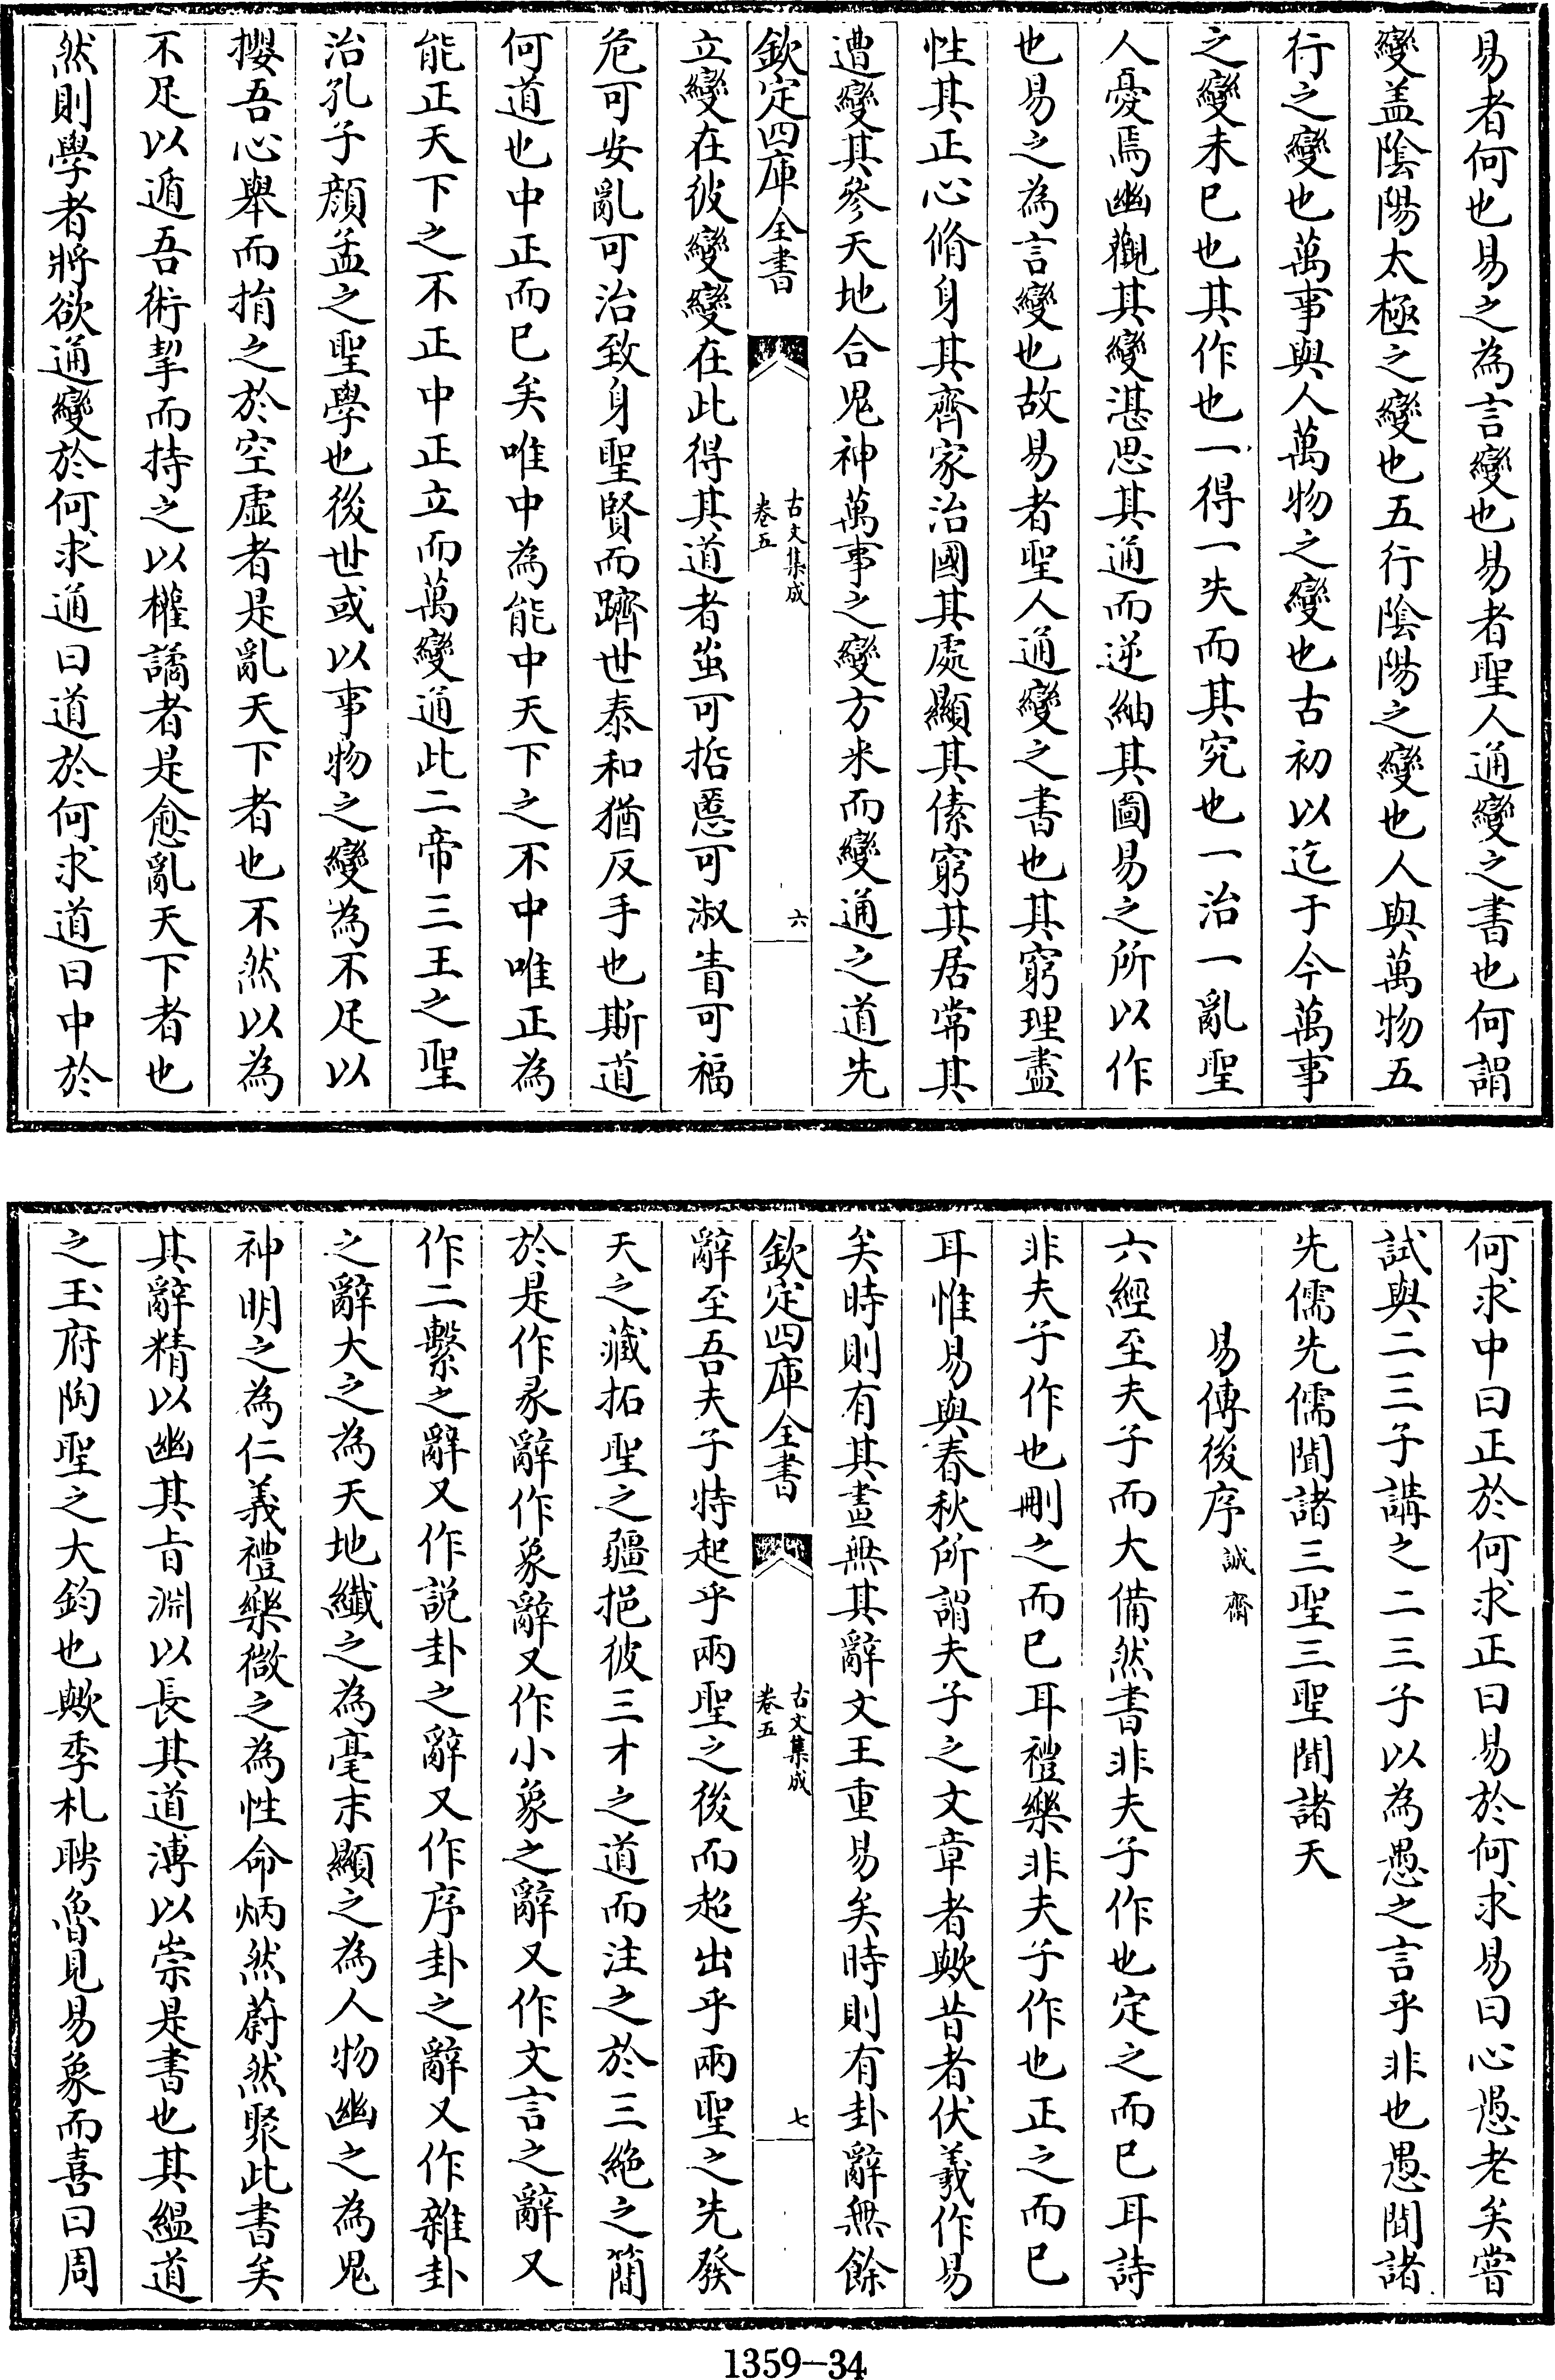 易者何也易之為言變也易者聖人通變之書也何謂
變盖陰陽太極之變也五行陰陽之變也人與萬物五
行之變也萬事與人萬物之變也古初以迄于今萬事
之變未已也其作也一得一失而其究也一治一亂聖
人憂焉幽觀其變湛思其通而逆紬其圖易之所以作
也易之為言變也故易者聖人通變之書也其窮理盡
性其正心脩身其齊家治國其處顯其傃窮其居常其
遭變其參天地合鬼神萬事之變方来而變通之道先
欽定四庫全書
古文集成
卷五
六
立變在彼變變在此得其道者蚩可哲慝可淑眚可福
危可安亂可治致身聖賢而躋世泰和猶反手也斯道
何道也中正而已矣唯中為能中天下之不中唯正為
能正天下之不正中正立而萬變通此二帝三王之聖
治孔子顔孟之聖學也後世或以事物之變為不足以
攖吾心舉而捐之於空虚者是亂天下者也不然以為
不足以遁吾術挈而持之以權譎者是愈亂天下者也
然則學者將欲通變於何求通曰道於何求道曰中於
何求中曰正於何求正曰易於何求易曰心愚老矣嘗
試與二三子講之二三子以為愚之言乎非也愚聞諸
先儒先儒聞諸三聖三聖聞諸天
易傳後序 誠齋
六經至夫子而大備然書非夫子作也定之而已耳詩
非夫子作也刪之而已耳禮樂非夫子作也正之而已
耳惟易與春秋所謂夫子之文章者歟昔者伏羲作易
矣時則有其畫無其辭文王重易矣時則有卦辭無餘
欽定四庫全書
古文集成
卷五
七
辭至吾夫子特起乎兩聖之後而超出乎兩聖之先發
天之藏拓聖之疆挹彼三才之道而注之於三絶之簡
於是作彖辭作象辭又作小象之辭又作文言之辭又
作二繫之辭又作説卦之辭又作序卦之辭又作雜卦
之辭大之為天地纖之為毫末顯之為人物幽之為鬼
神明之為仁義禮樂微之為性命炳然蔚然聚此書矣
其辭精以幽其旨淵以長其道溥以崇是書也其緼道
之玉府陶聖之大鈞也歟季札聘魯見易象而喜曰周
1359—34